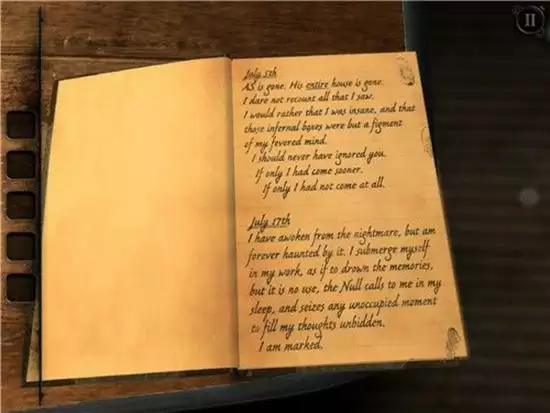 II
July 5th
AS is gone. His entire house is gone.
I dare not recount all that I saw.
I would rather that I was insane, and that
those infernal boxes were but a figment
of my fevered mind.
I should never have ignored you.
If only I had come sooner.
If only I had not come at all.
July 17th
I have awoken from the nightmare, but am
forever haunted by it. I submerge myself
in my work, as if to drown the memories,
but it is no use, the Null calls to me in my
sleep, and seizes any unoccupied moment
to fill my thoughts unbidden.
I am marked.